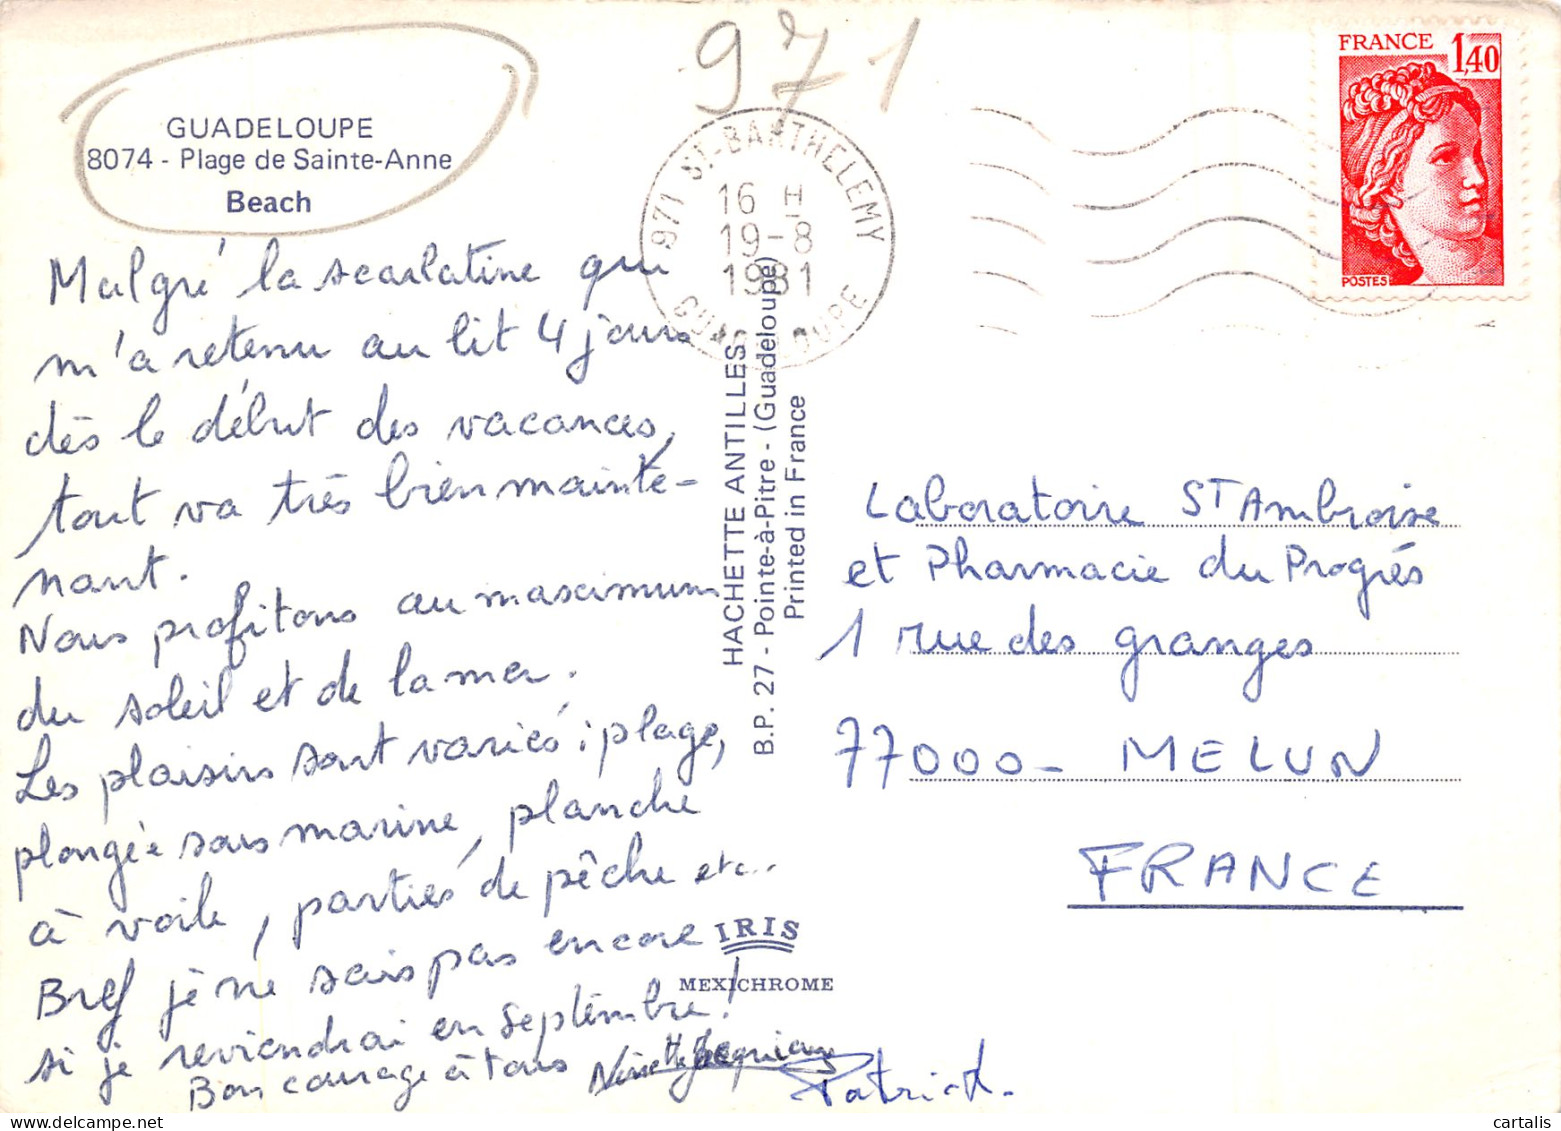 971
GUADELOUPE
8074 - Plage de Sainte-Anne
Beach
971 ST-BARTHELEMY
16 H
19-8
1981
GUADELOUPE
FRANCE
1,40
POSTES
Malgré la scarlatine qui
m'a retenu au lit 4 jours
dès le début des vacances,
tout va très bien mainte-
nant.
Nous profitons au maximum
du soleil et de la mer.
Les plaisirs sont variés : plage,
plongée sous marine, planche
à voile, parties de pêche etc..
Bref je ne sais pas encore
si je reviendrai en septembre!
Bon courage à tous
Patrick.
HACHETTE ANTILLES
B.P. 27 - Pointe-à-Pitre - (Guadeloupe)
Printed in France
IRIS
MEXICHROME
Laboratoire ST Ambroise
et Pharmacie du Progrés
1 rue des granges
77000 - MELUN
FRANCE
cartalis